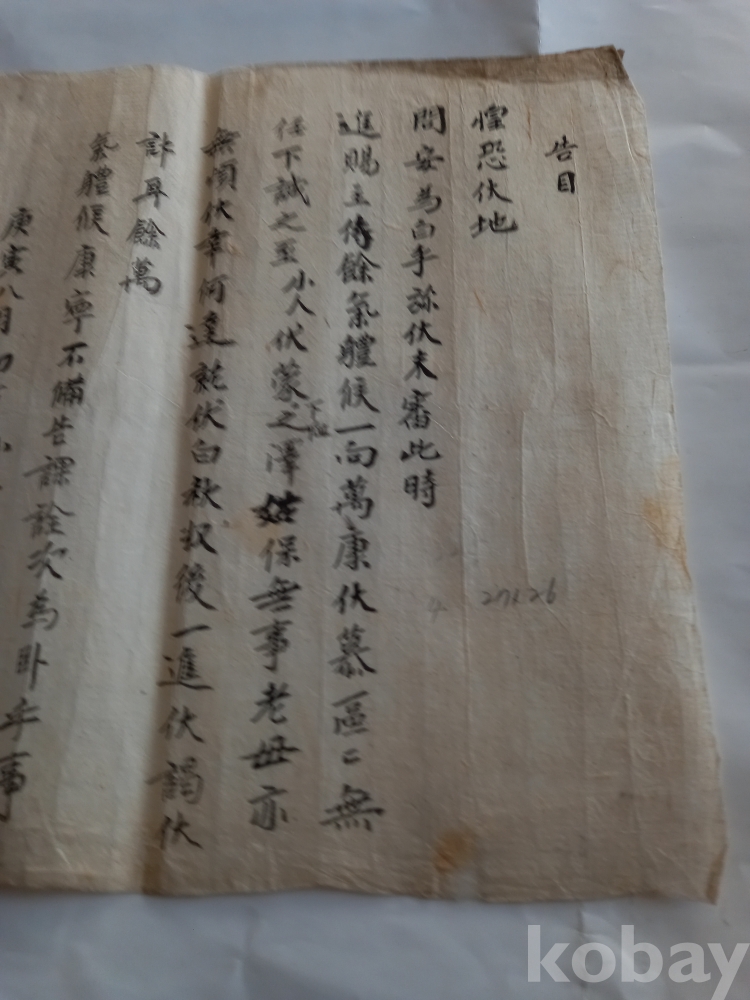 告目
惶恐伏地
問安為白乎弥伏未審此時
進賜主侍餘氣體候一向萬康伏慕區〻無
任下誠之至小人伏蒙下念之澤姑保無事老母亦
無頉伏幸何達就伏白秋收後一進伏謁伏
計耳餘萬
氣體候康寧不備告課詮次為卧乎事
庚寅八月初
27x26
kobay